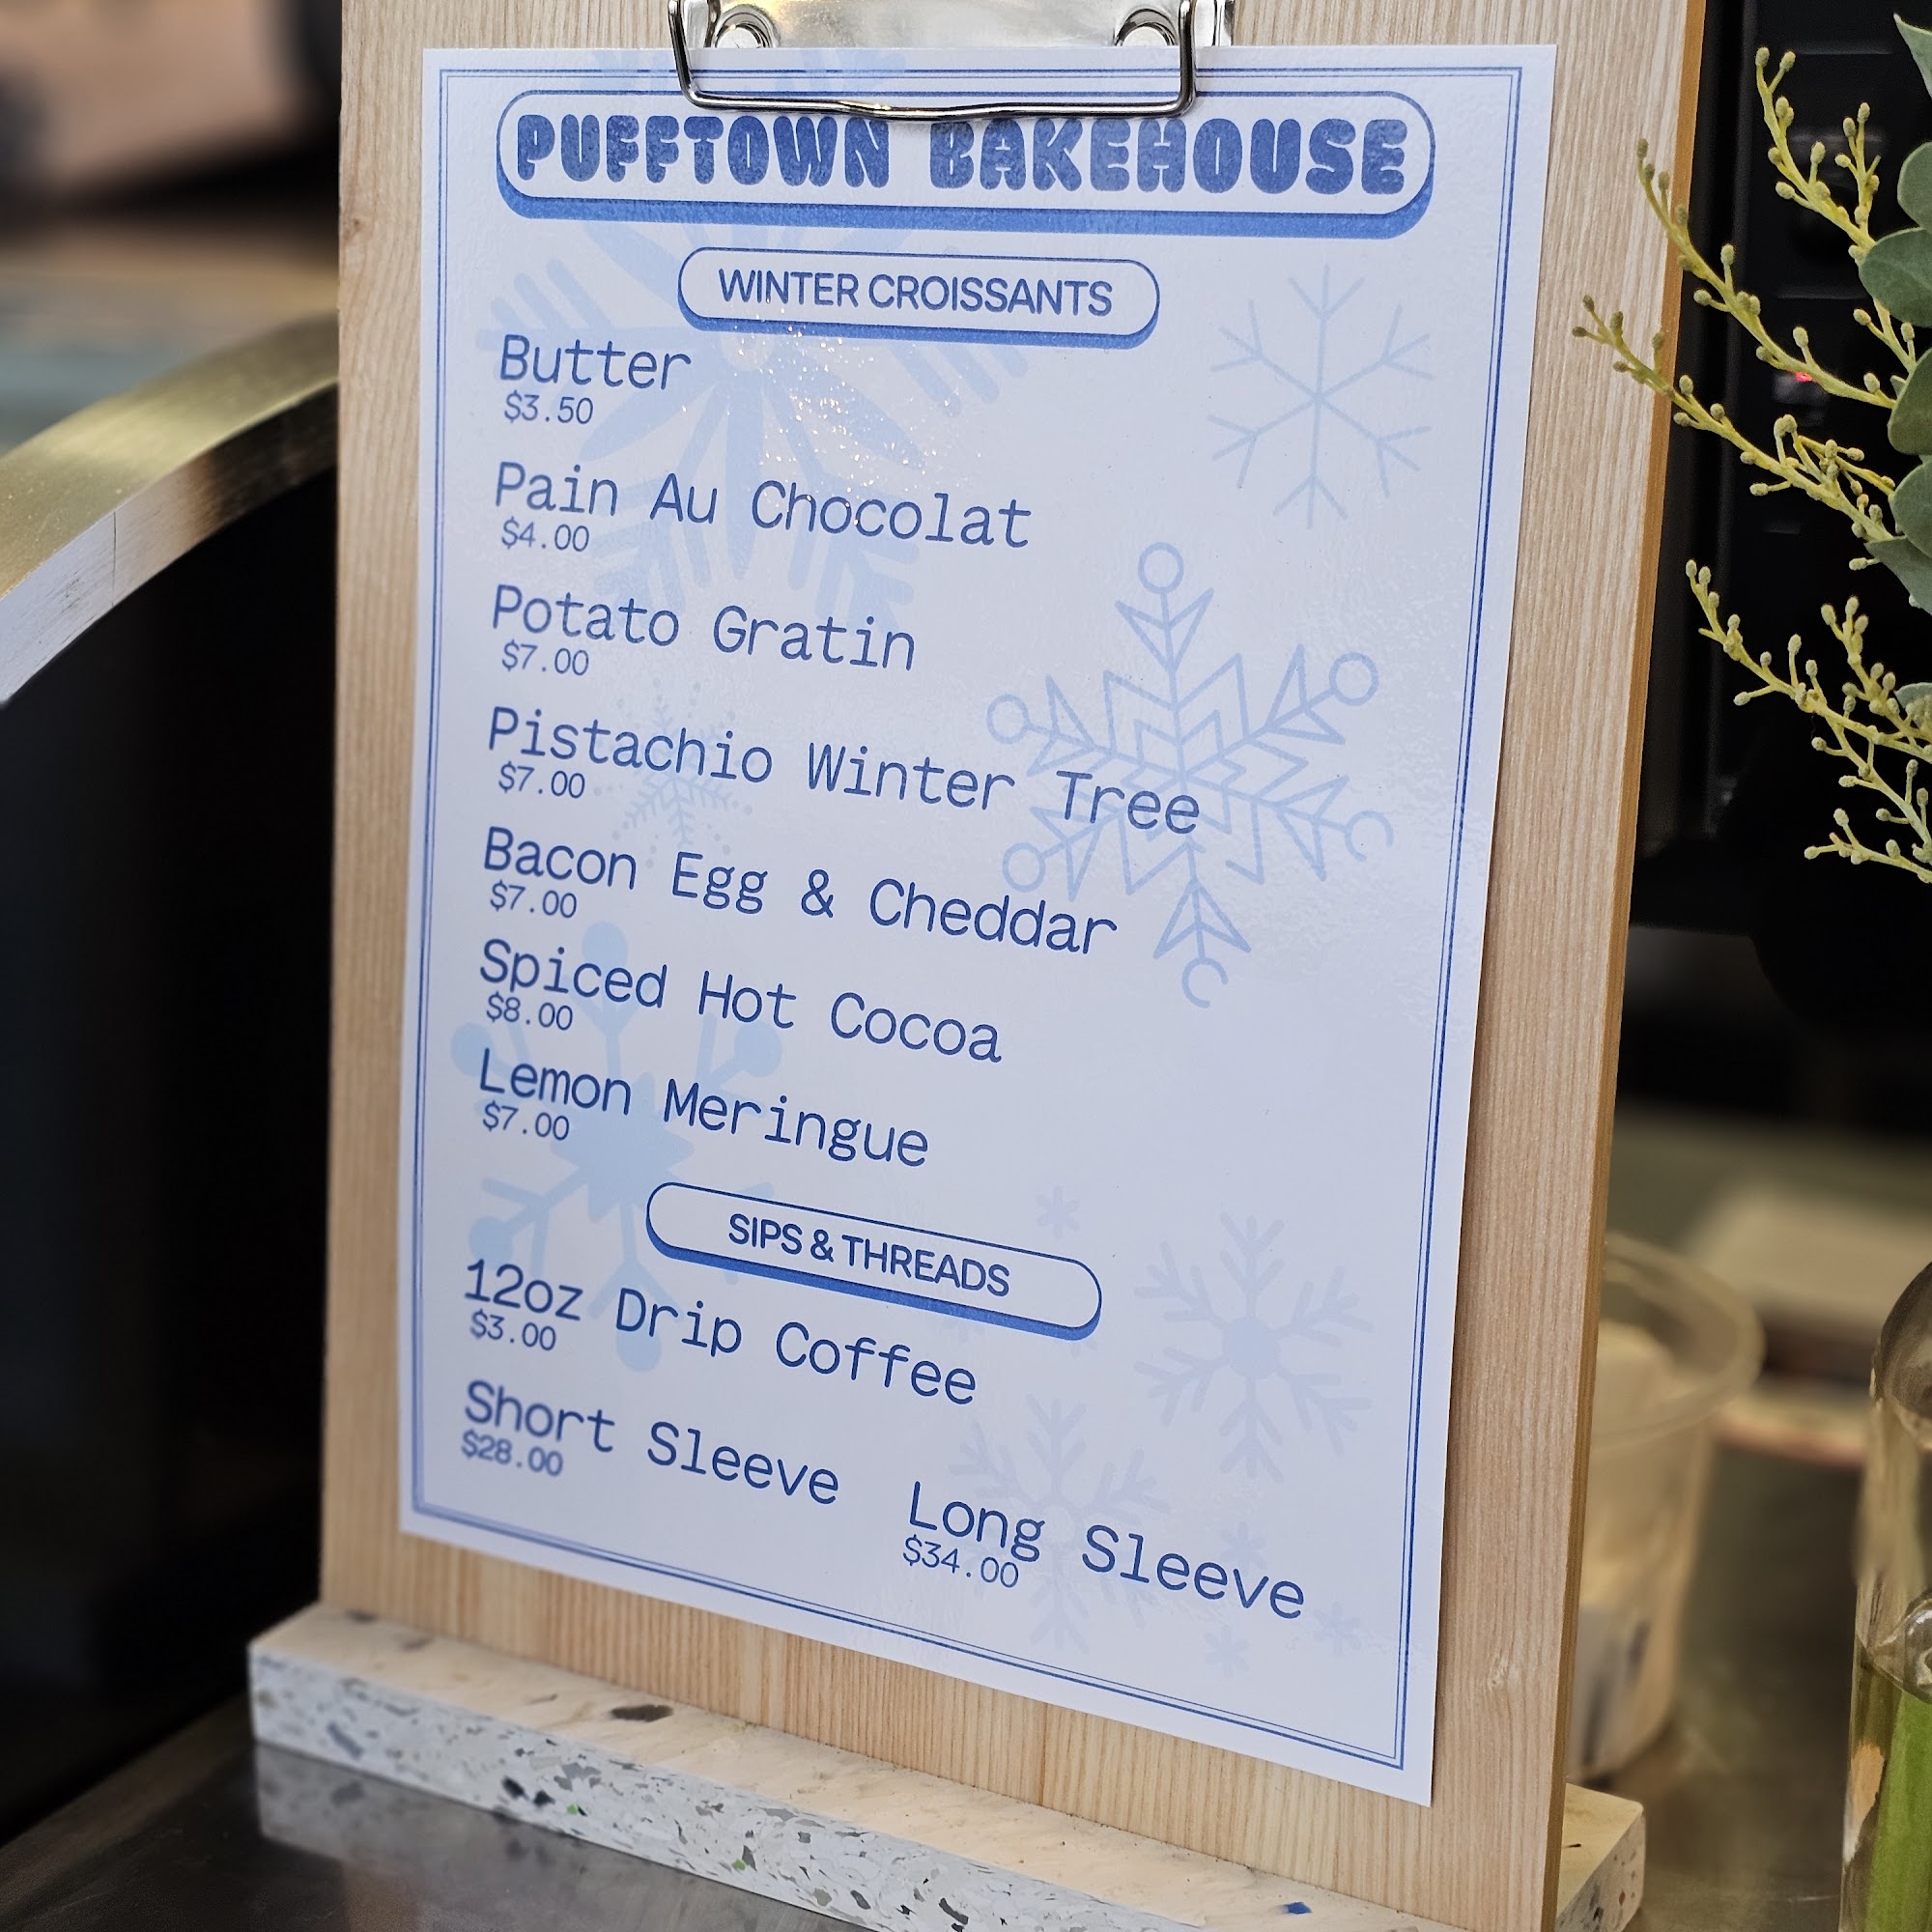 PUFFTOWN BAKEHOUSE
WINTER CROISSANTS
Butter
$3.50
Pain Au Chocolat
$4.00
Potato Gratin
$7.00
Pistachio Winter Tree
$7.00
Bacon Egg & Cheddar
$7.00
Spiced Hot Cocoa
$8.00
Lemon Meringue
$7.00
SIPS & THREADS
12oz Drip Coffee
$3.00
Short Sleeve
$28.00
Long Sleeve
$34.00